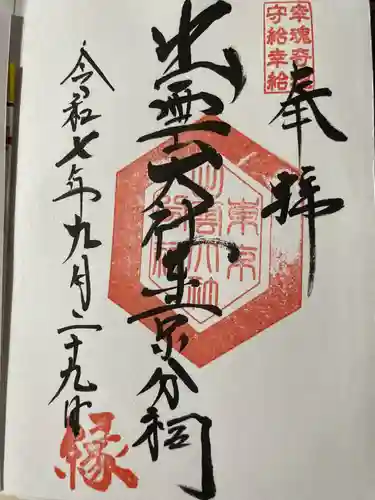 幸魂奇魂
守給幸給
奉拝
出雲大社東京分祠
令和七年九月二十九日
縁